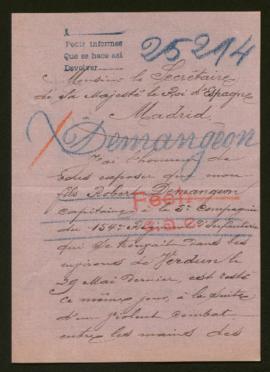 A
Pedir informes
Que se hace así
Devolver
25214
Monsieur le Secrétaire
de Sa Majesté le Roi d'Espagne
Madrid
Demangeon
J'ai l'honneur de
vous exposer que mon
fils Robert Demangeon
capitaine à la 2e Compagnie
du 154e Régt d'Infanterie
qui se trouvait dans les
environs de Verdun le
29 Mai dernier, est resté
ce même jour, à la suite
d'un violent combat
entre les mains des